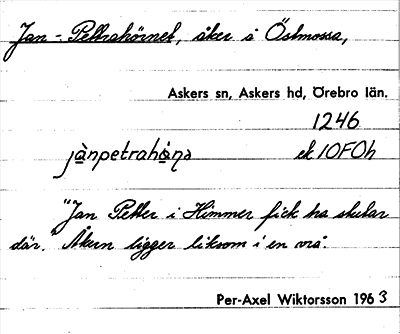 Jan-Pettrahörnet, åker å Östmossa,
Askers sn, Askers hd, Örebro län.
1246
jànpetrahö̀ṇə ek 10F0h
"Jan Petter i Himmer fick ha skutar
där." Åkern ligger liksom i en vrå.
Per-Axel Wiktorsson 1963